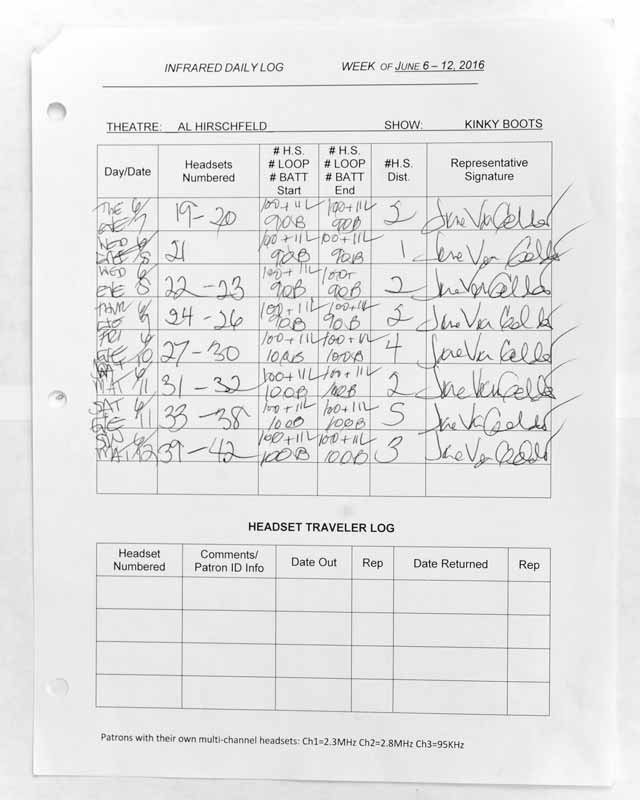 INFRARED DAILY LOG WEEK OF JUNE 6 – 12, 2016
THEATRE: AL HIRSCHFELD SHOW: KINKY BOOTS
Day/Date Headsets Numbered # H.S. # LOOP # BATT Start # H.S. # LOOP # BATT End #H.S. Dist. Representative Signature
TUE 6/ EVE 7 19-20 100+11L 90B 100+11L 90B 2 Jane Van Gelder
WED 6/ 8 21 100+11L 90B 100+11L 90B 1 Jane Van Gelder
WED 6/ EVE 8 22-23 100+11L 90B 100+ 90B 2 Jane Van Gelder
6/ 24-26 100+11L 90B 100+11L 90B 2 Jane Van Gelder
FRI 6/ EVE 10 27-30 100+11L 100B 100+11L 100B 4 Jane Van Gelder
6/ MAT 11 31-32 100+11L 100B 100+11L 100B 2 Jane Van Gelder
SAT 6/ EVE 11 33-38 100+11L 100B 100+11L 100B 5 Jane Van Gelder
SUN 6/ MAT 12 39-42 100+11L 100B 100+11L 100B 3 Jane Van Gelder
HEADSET TRAVELER LOG
Headset Numbered Comments/ Patron ID Info Date Out Rep Date Returned Rep
Patrons with their own multi-channel headsets: Ch1=2.3MHz Ch2=2.8MHz Ch3=95KHz